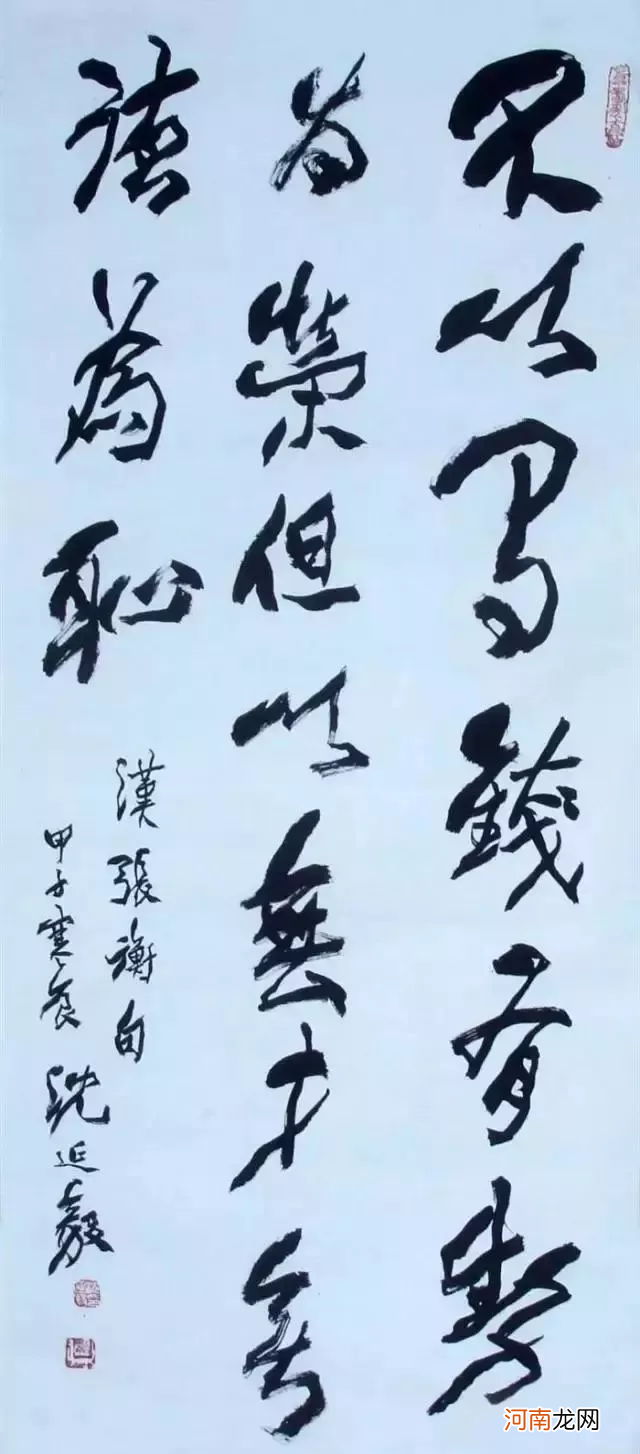 不以錢有勢
為榮但以無才無
德為恥
漢張衡句
甲子寒食沈延毅
河南龙网